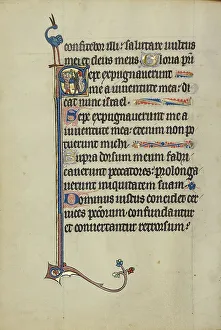 confitebor illi: salutare uultus
mei et deus meus Gloria pr̄i
Sepe expugnauerunt
me a iuuentute mea: di
cat nunc israel.
Sepe expugnauerunt me a
iuuentute mea: etenim non po
tuerunt michi.
Supra dorsum meum fabri
cauerunt peccatores: prolonga
uerunt iniquitatem suam.
Dominus iustus concidet cer
uices peccatorum: confundantur
et conuertantur retrorsum: